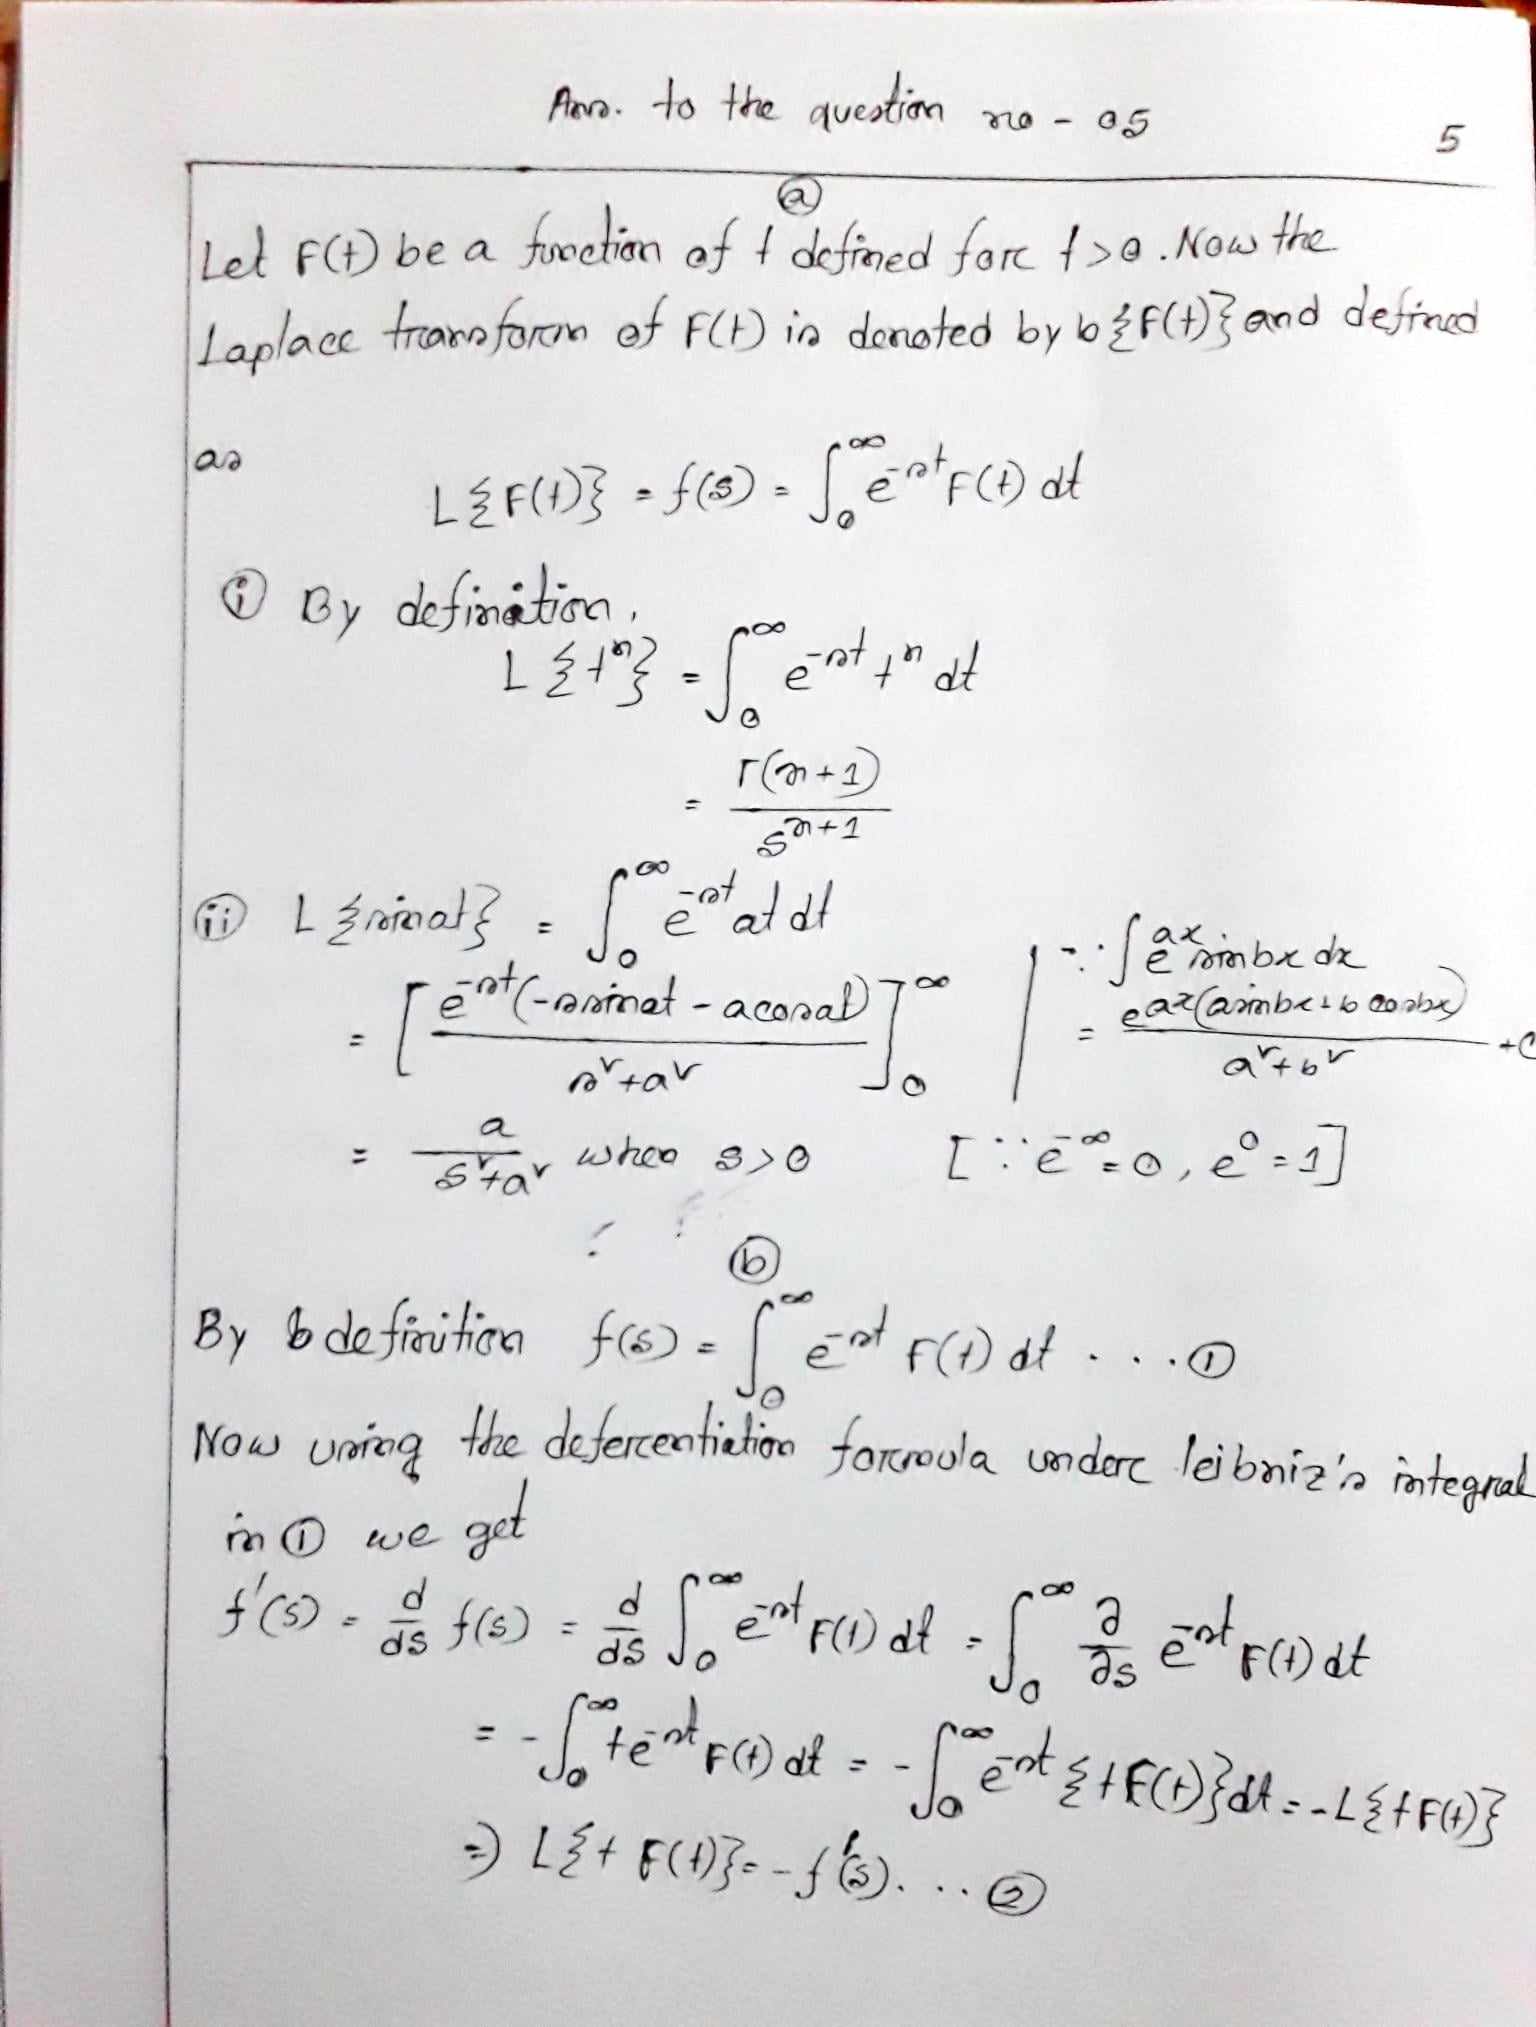 Ans. to the question no - 05
5
(a)
Let F(t) be a function of t defined for t>0. Now the
Laplace transform of F(t) is denoted by L{F(t)} and defined
as
L{F(t)} = f(s) = ∫₀^∞ e^{-st} F(t) dt
(i) By defination,
L{t^n} = ∫₀^∞ e^{-st} t^n dt
= Γ(n+1) / s^{n+1}
(ii) L{sinat} = ∫₀^∞ e^{-st} at dt
= [e^{-st}(-ssinat - acosat) / (s²+a²)]₀^∞
∵ ∫e^{ax} sinbx dx
= e^{ax}(asinbx - b cosbx) / (a²+b²) + c
= a / (s²+a²) when s>0 [∵ e^{-∞}=0, e^0=1]
(b)
By definition f(s) = ∫₀^∞ e^{-st} F(t) dt ....(1)
Now using the deferentiation formula under leibniz's integral
in (1) we get
f'(s) = d/ds f(s) = d/ds ∫₀^∞ e^{-st} F(t) dt = ∫₀^∞ ∂/∂s e^{-st} F(t) dt
= -∫₀^∞ te^{-st} F(t) dt = -∫₀^∞ e^{-st} {tF(t)}dt = -L{tF(t)}
⇒ L{t F(t)} = -f'(s). ...(2)